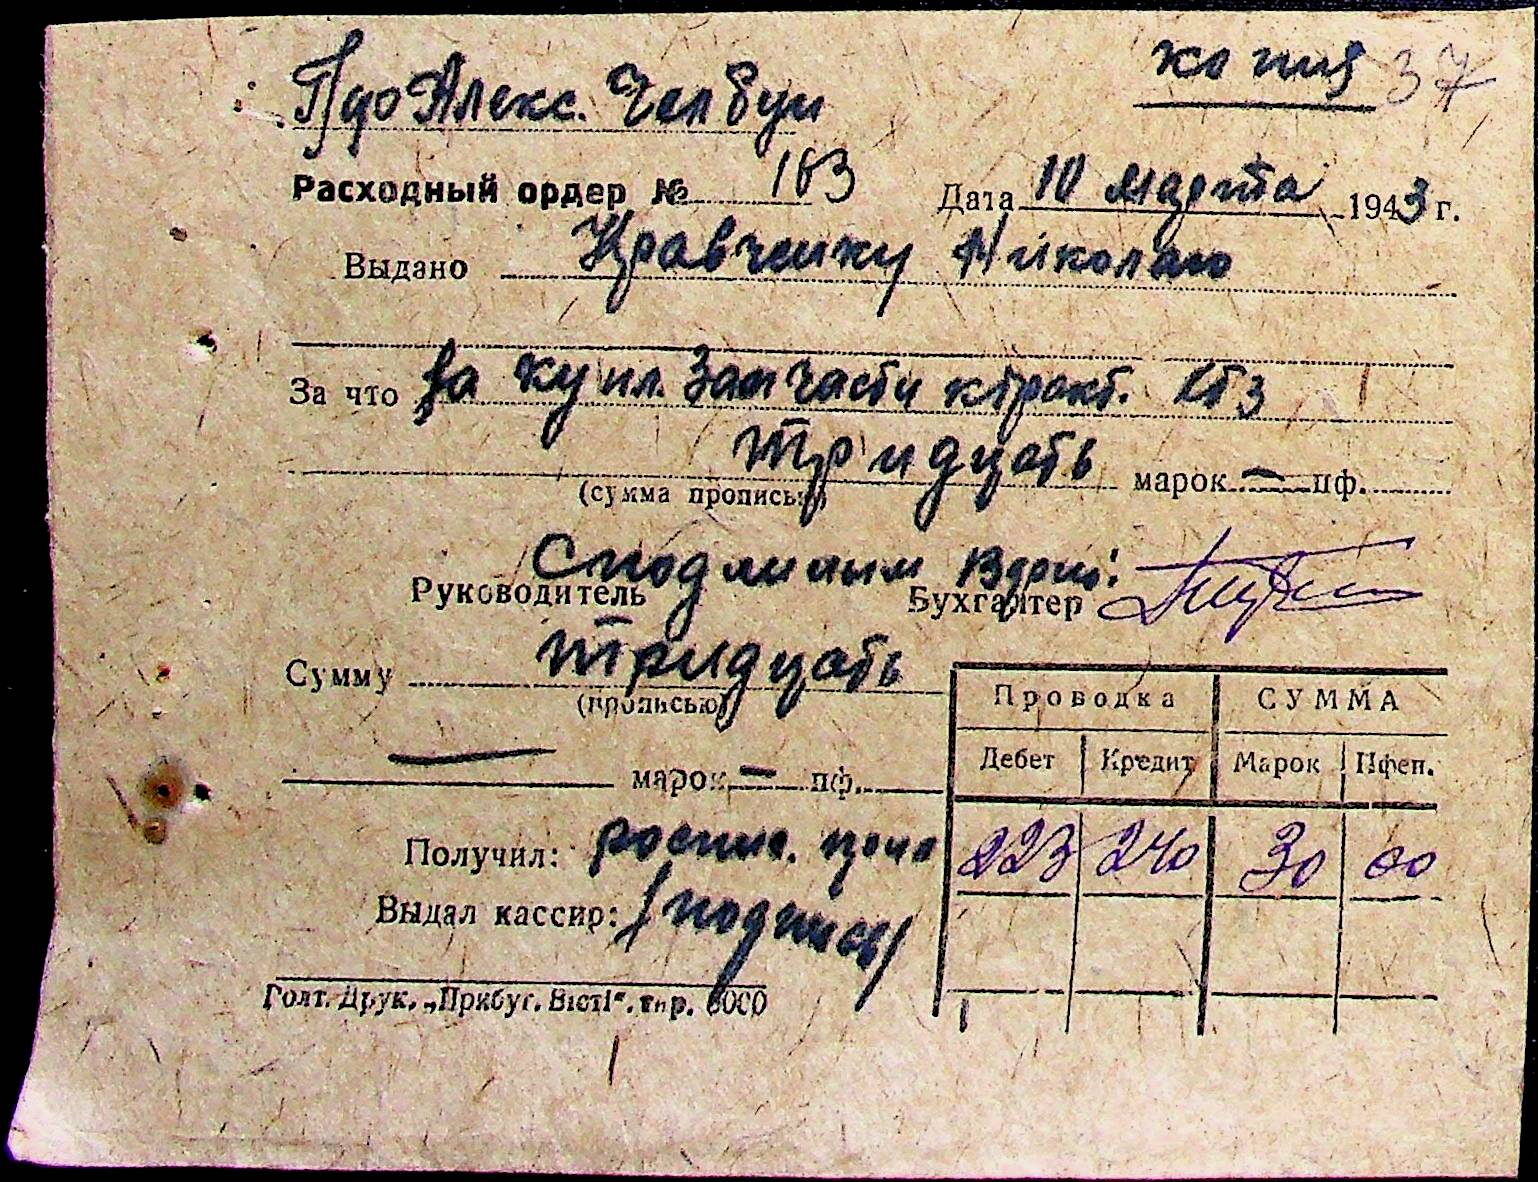 копия 37
Пдо Алекс.
Расходный ордер № 163 Дата 10 марта 1943 г.
Выдано Кравченку Николаю
За что за купл. Запчасти ктракт. ХТЗ
тридцать марок — пф.
(сумма прописью)
С подлиным верно:
Руководитель Бухгалтер
Сумму тридцать
(прописью)
— марок — пф.
Проводка СУММА
Дебет Кредит Марок Пфен.
223 240 30 00
Получил:
Выдал кассир: /подпись/
Голт. Друк. „Прибуг. Вісті". тир. 6000